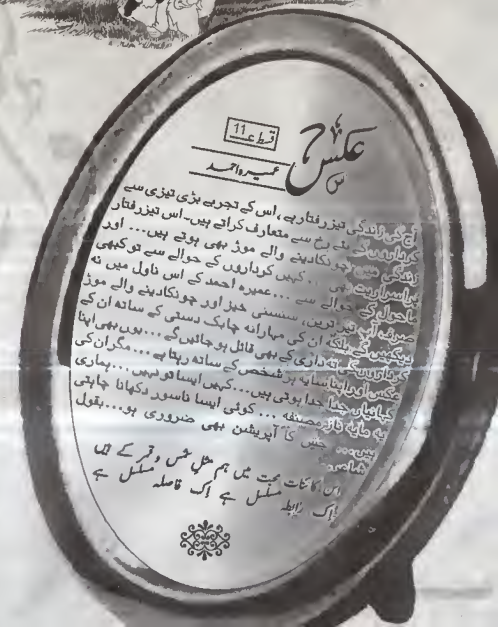 قسط 11
عکس
عمیرہ احمد
آج کی زندگی تیز رفتار ہے، اس کے تجربے بڑی تیزی سے
کرداروں کے نئے رخ سے متعارف کراتے ہیں۔ اس تیز رفتار
زندگی میں چونکا دینے والے موڑ بھی ہوتے ہیں... اور
پراسراریت بھی... کہیں کرداروں کے حوالے سے تو کبھی
ماحول کے حوالے سے... عمیرہ احمد کے اس ناول میں نہ
صرف آپ تیز ترین، سنسنی خیز اور چونکا دینے والے موڑ
دیکھیں گے بلکہ ان کی مہارانہ چابک دستی کے ساتھ ان کے
کرداروں کی تہ داری کے بھی قائل ہو جائیں گے... یوں بھی اپنا
عکس اور اپنا سایہ ہر شخص کے ساتھ رہتا ہے... مگر ان کی
کہانیاں جدا جدا ہوتی ہیں... کہیں ایسا تو نہیں... ہماری
یہ مایہ ناز مصنفہ... کوئی ایسا ناسور دکھانا چاہتی
ہیں... جس کا آپریشن بھی ضروری ہو... بقول
شاعر۔
اس کائنات محبت میں ہم مثل شمس و قمر کے ہیں
اک رابطہ مسلسل ہے اک فاصلہ مسلسل ہے